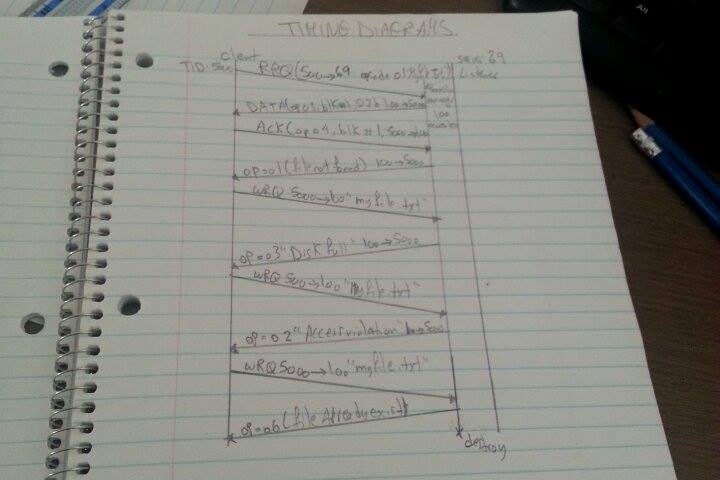 TIMING DIAGRAMS
client
server 69
TID: 5000
RRQ(5000→69 opcode 01
Listener
DATA(op03, blk#1, 02b 100→5000
100
ACK(op04, blk#1, 5000→100
op=01(file not found) 100→5000
WRQ 5000→100 "myfile.txt"
op=03 "Disk full" 100→5000
WRQ 5000→100 "myfile.txt"
op=02 "Access violation" 100→5000
WRQ 5000→100 "myfile.txt"
op=06(file Already exist)
destroy